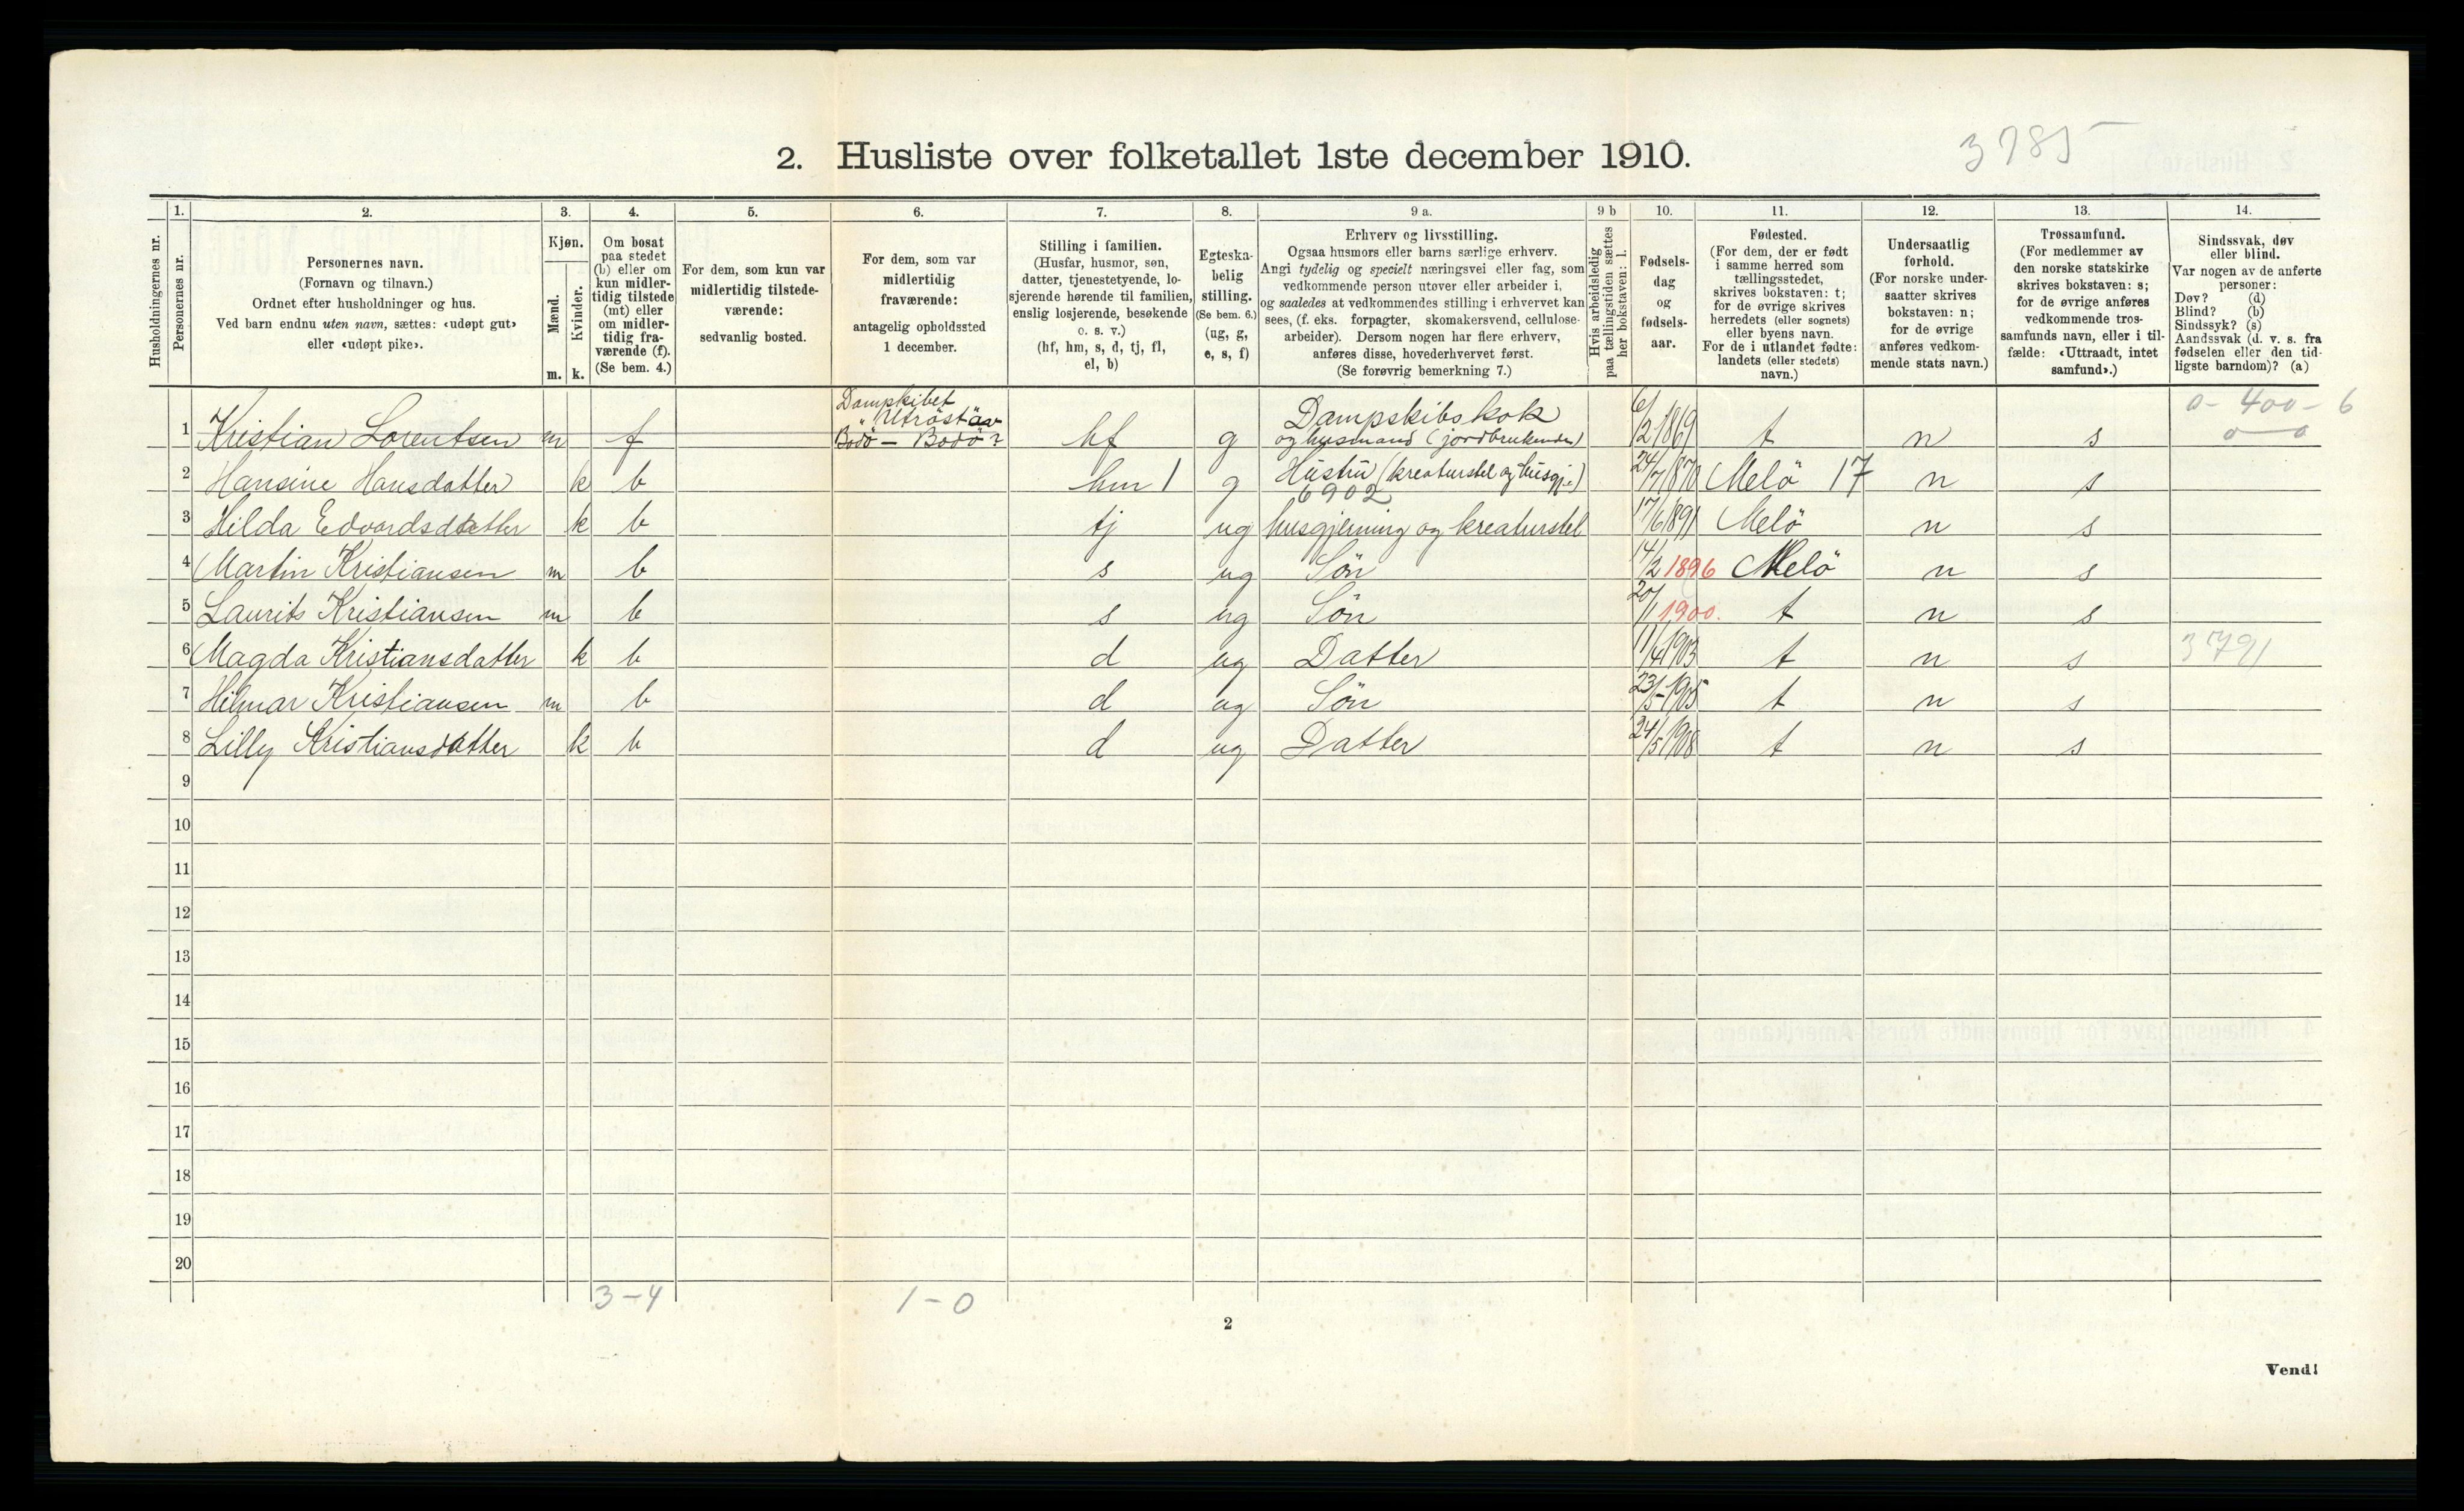 3785
2. Husliste over folketallet 1ste december 1910.
Husholdningernes nr.
1.
Personernes nr.
2.
Personernes navn.
(Fornavn og tilnavn.)
Ordnet efter husholdninger og hus.
Ved barn endnu uten navn, sættes: «udøpt gut»
eller «udøpt pike».
3.
Kjøn.
Mænd.
Kvinder.
m. k.
4.
Om bosat
paa stedet
(b) eller om
kun midler-
tidig tilstede
(mt) eller
om midler-
tidig fra-
værende (f).
(Se bem. 4.)
5.
For dem, som kun var
midlertidig tilstede-
værende:
sedvanlig bosted.
6.
For dem, som var
midlertidig
fraværende:
antagelig opholdssted
1 december.
7.
Stilling i familien.
(Husfar, husmor, søn,
datter, tjenestetyende, lo-
sjerende hørende til familien,
enslig losjerende, besøkende
o. s. v.)
(hf, hm, s, d, tj, fl,
el, b)
8.
Egteska-
belig
stilling.
(Se bem. 6.)
(ug, g,
e, s, f)
9 a.
Erhverv og livsstilling.
Ogsaa husmors eller barns særlige erhverv.
Angi tydelig og specielt næringsvei eller fag, som
vedkommende person utøver eller arbeider i,
og saaledes at vedkommendes stilling i erhvervet kan
sees, (f. eks. forpagter, skomakersvend, cellulose-
arbeider). Dersom nogen har flere erhverv,
anføres disse, hovederhvervet først.
(Se forøvrig bemerkning 7.)
9 b
Hvis arbeidsledig
paa tællingstiden sættes
her bokstaven: l.
10.
Fødsels-
dag
og
fødsels-
aar.
11.
Fødested.
(For dem, der er født
i samme herred som
tællingsstedet,
skrives bokstaven: t;
for de øvrige skrives
herredets (eller sognets)
eller byens navn.
For de i utlandet fødte:
landets (eller stedets)
navn.)
12.
Undersaatlig
forhold.
(For norske under-
saatter skrives
bokstaven: n;
for de øvrige
anføres vedkom-
mende stats navn.)
13.
Trossamfund.
(For medlemmer av
den norske statskirke
skrives bokstaven: s;
for de øvrige anføres
vedkommende tros-
samfunds navn, eller i til-
fælde: «Uttraadt, intet
samfund».)
14.
Sindssvak, døv
eller blind.
Var nogen av de anførte
personer:
Døv? (d)
Blind? (b)
Sindssyk? (s)
Aandssvak (d. v. s. fra
fødselen eller den tid-
ligste barndom)? (a)
0 - 400 - 6
0 - 0
Dampskibet
"Utröst" av
1 Kristian Lorentsen m f Bodö — Bodö? hf g Dampskibskok og husmand (jordbrukende) 6/2 1869 t n s
2 Hansine Hansdatter k b hm 1 g Hustru (kreaturstel og husgj.) 24/7 1870 Melö 17 n s
6902
3 Hilda Edvardsdatter k b tj ug husgjerning og kreaturstel 17/6 1891 Melö n s
4 Martin Kristiansen m b s ug Sön 14/2 1896 Melö n s
5 Laurits Kristiansen m b s ug Sön 20/11 1900. t n s
6 Magda Kristiansdatter k b d ug Datter 11/4 1903 t n s 3791
7 Hilmar Kristiansen m b d ug Sön 23/5 1905 t n s
8 Lilly Kristiansdatter k b d ug Datter 24/5 1908 t n s
9
10
11
12
13
14
15
16
17
18
19
20
3 - 4
1 - 0
2
Vend!